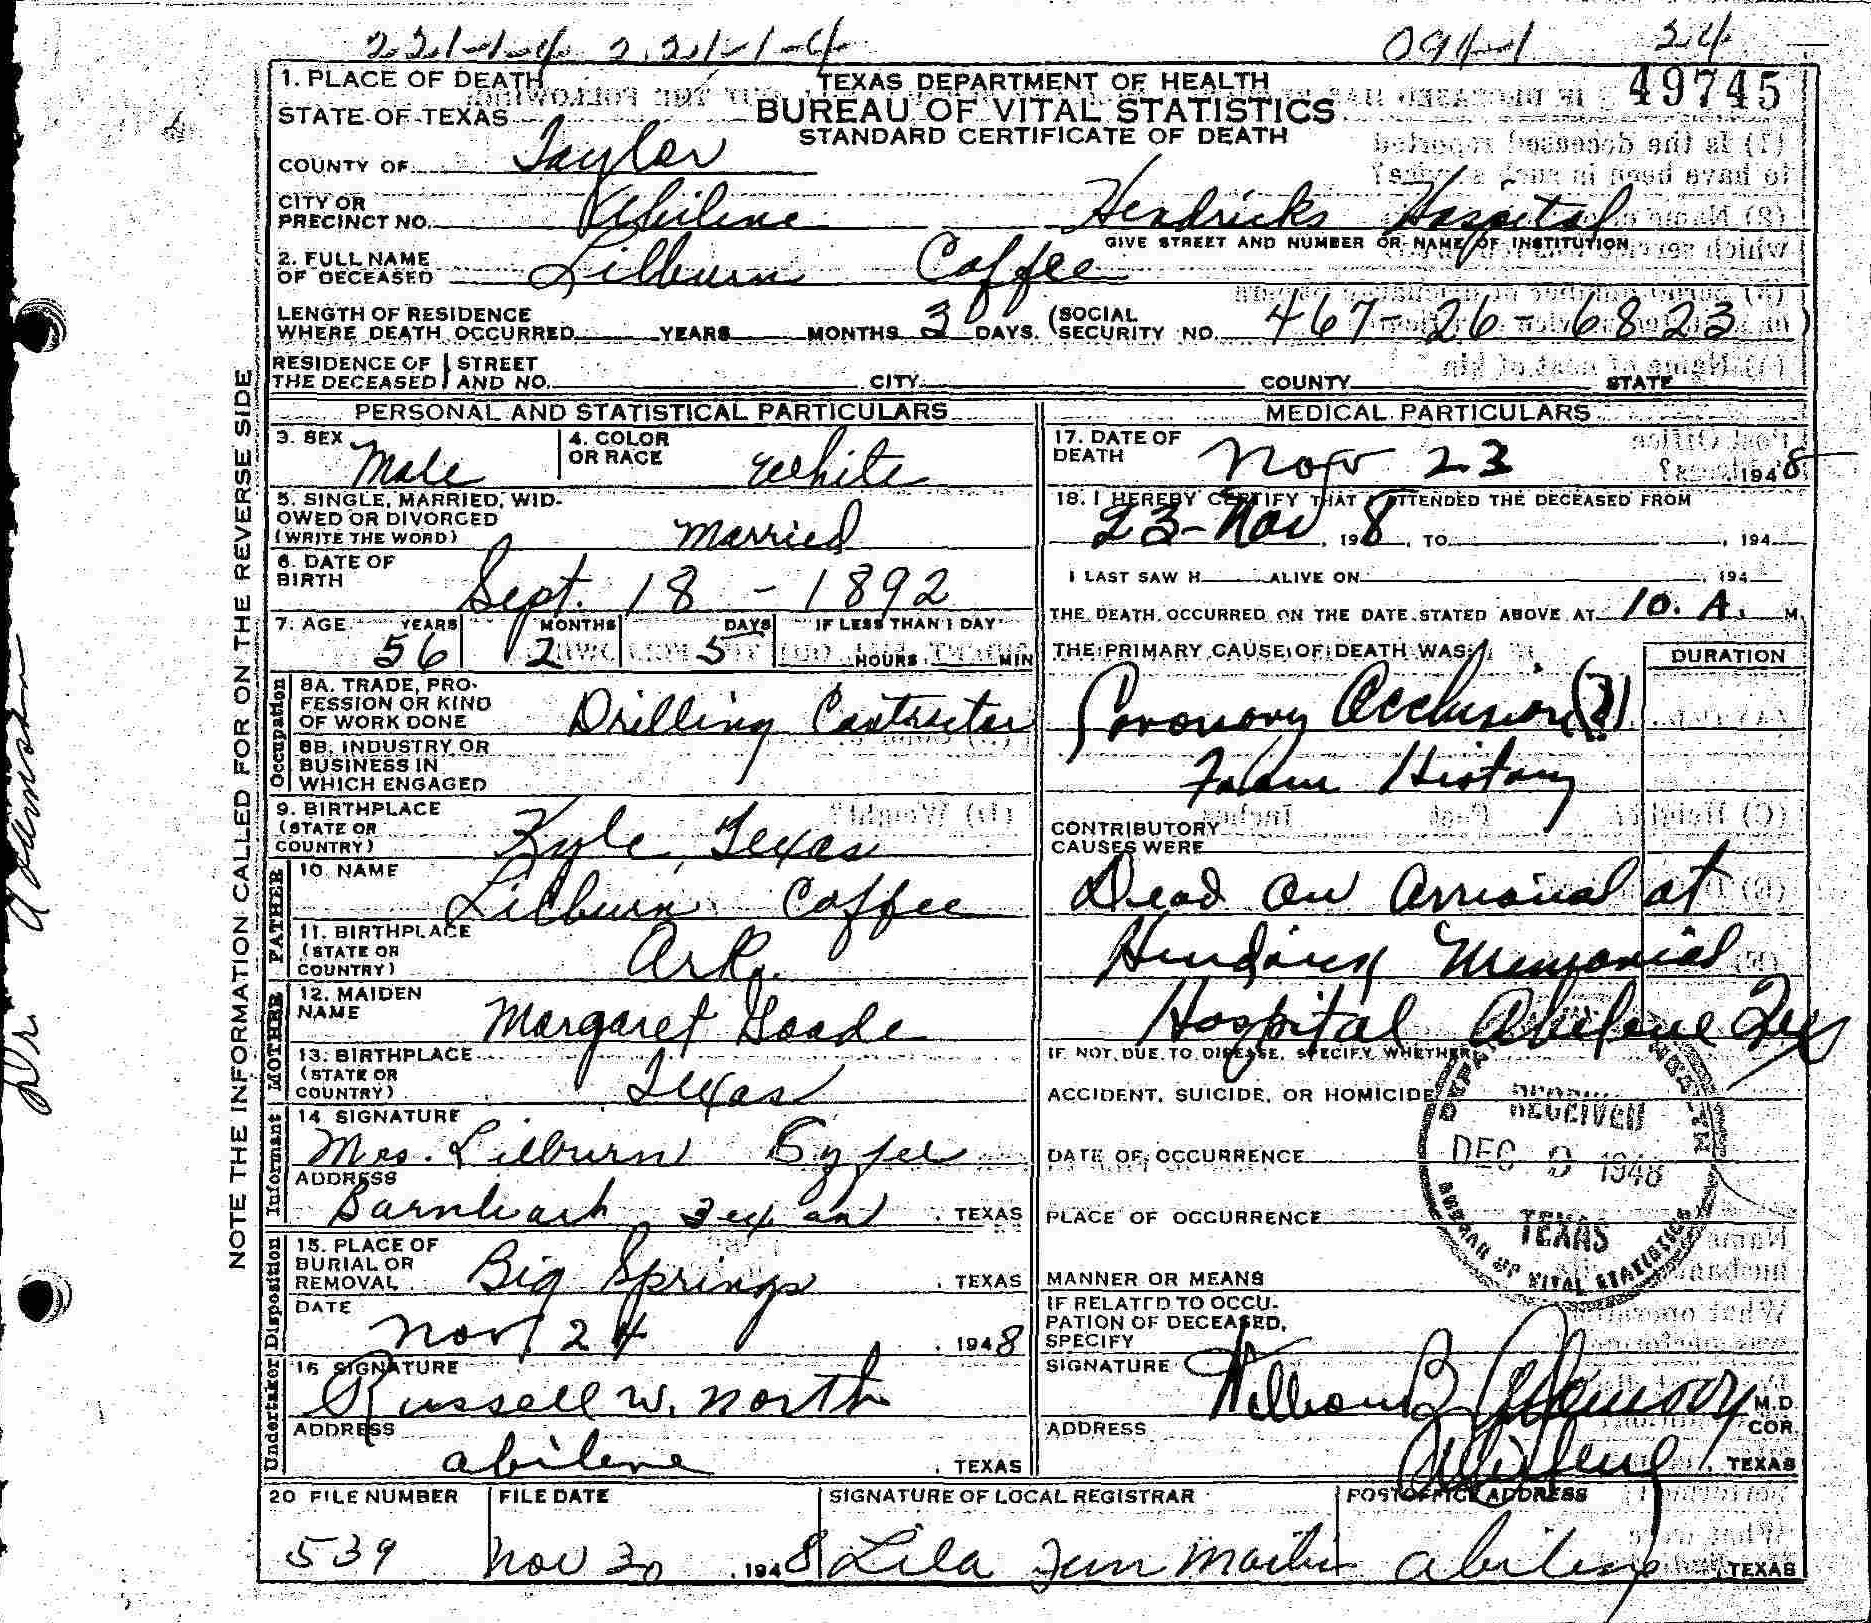 221-1-4 2.21-1-4 094-1 24
1. PLACE OF DEATH TEXAS DEPARTMENT OF HEALTH 49745
STATE OF TEXAS BUREAU OF VITAL STATISTICS
STANDARD CERTIFICATE OF DEATH
COUNTY OF Taylor
CITY OR
PRECINCT NO. Abilene Hendricks Hospital
GIVE STREET AND NUMBER OR NAME OF INSTITUTION
2. FULL NAME
OF DECEASED Lilburn Coffee
LENGTH OF RESIDENCE
WHERE DEATH OCCURRED YEARS MONTHS 3 DAYS. (SOCIAL SECURITY NO. 467-26-6823)
RESIDENCE OF THE DECEASED STREET AND NO. CITY COUNTY STATE
PERSONAL AND STATISTICAL PARTICULARS
3. SEX Male 4. COLOR OR RACE White
5. SINGLE, MARRIED, WID-
OWED OR DIVORCED
(WRITE THE WORD) Married
6. DATE OF
BIRTH Sept. 18 - 1892
7. AGE YEARS MONTHS DAYS IF LESS THAN 1 DAY
56 2 5 HOURS MIN
Occupation
8A. TRADE, PRO-
FESSION OR KIND
OF WORK DONE Drilling Contractor
8B. INDUSTRY OR
BUSINESS IN
WHICH ENGAGED
9. BIRTHPLACE
(STATE OR
COUNTRY) Kyle, Texas
FATHER
10. NAME Lilburn Coffee
11. BIRTHPLACE
(STATE OR
COUNTRY) Ark.
MOTHER
12. MAIDEN
NAME Margaret Goode
13. BIRTHPLACE
(STATE OR
COUNTRY) Texas
Informant
14. SIGNATURE
Mrs. Lilburn
ADDRESS
Barnhart Texas, TEXAS
Disposition
15. PLACE OF
BURIAL OR
REMOVAL Big Springs, TEXAS
DATE
Nov 24, 1948
Undertaker
16 SIGNATURE
Russell W. North
ADDRESS
Abilene, TEXAS
MEDICAL PARTICULARS
17. DATE OF
DEATH Nov 23 1948
18. I HEREBY CERTIFY THAT I ATTENDED THE DECEASED FROM
23-Nov, 1948, TO , 194
I LAST SAW H ALIVE ON , 194
THE DEATH OCCURRED ON THE DATE STATED ABOVE AT 10. A. M.
THE PRIMARY CAUSE OF DEATH WAS: DURATION
Coronary Occlusion (?)
From History
CONTRIBUTORY
CAUSES WERE
Dead on arrival at
Hendrick Memorial
Hospital Abilene Tex
IF NOT DUE TO DISEASE, SPECIFY WHETHER
ACCIDENT, SUICIDE, OR HOMICIDE
DATE OF OCCURRENCE
PLACE OF OCCURRENCE
MANNER OR MEANS
IF RELATED TO OCCU-
PATION OF DECEASED,
SPECIFY
SIGNATURE William B. M.D.
COR.
ADDRESS Abilene, TEXAS
RECEIVED
DEC 9 1948
TEXAS
BUREAU OF VITAL STATISTICS
20 FILE NUMBER FILE DATE SIGNATURE OF LOCAL REGISTRAR POSTOFFICE ADDRESS
539 Nov 30, 1948 Lila Abilene, TEXAS
NOTE THE INFORMATION CALLED FOR ON THE REVERSE SIDE
Dr.